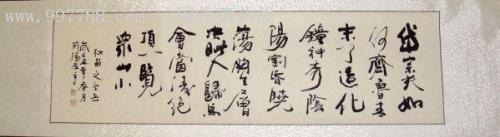 岱宗夫如
何齊魯青
未了造化
鐘神秀陰
陽割昏曉
蕩胸生層
決眦入歸鳥
會當凌絕
頂一覽
眾山小
www.997788.com